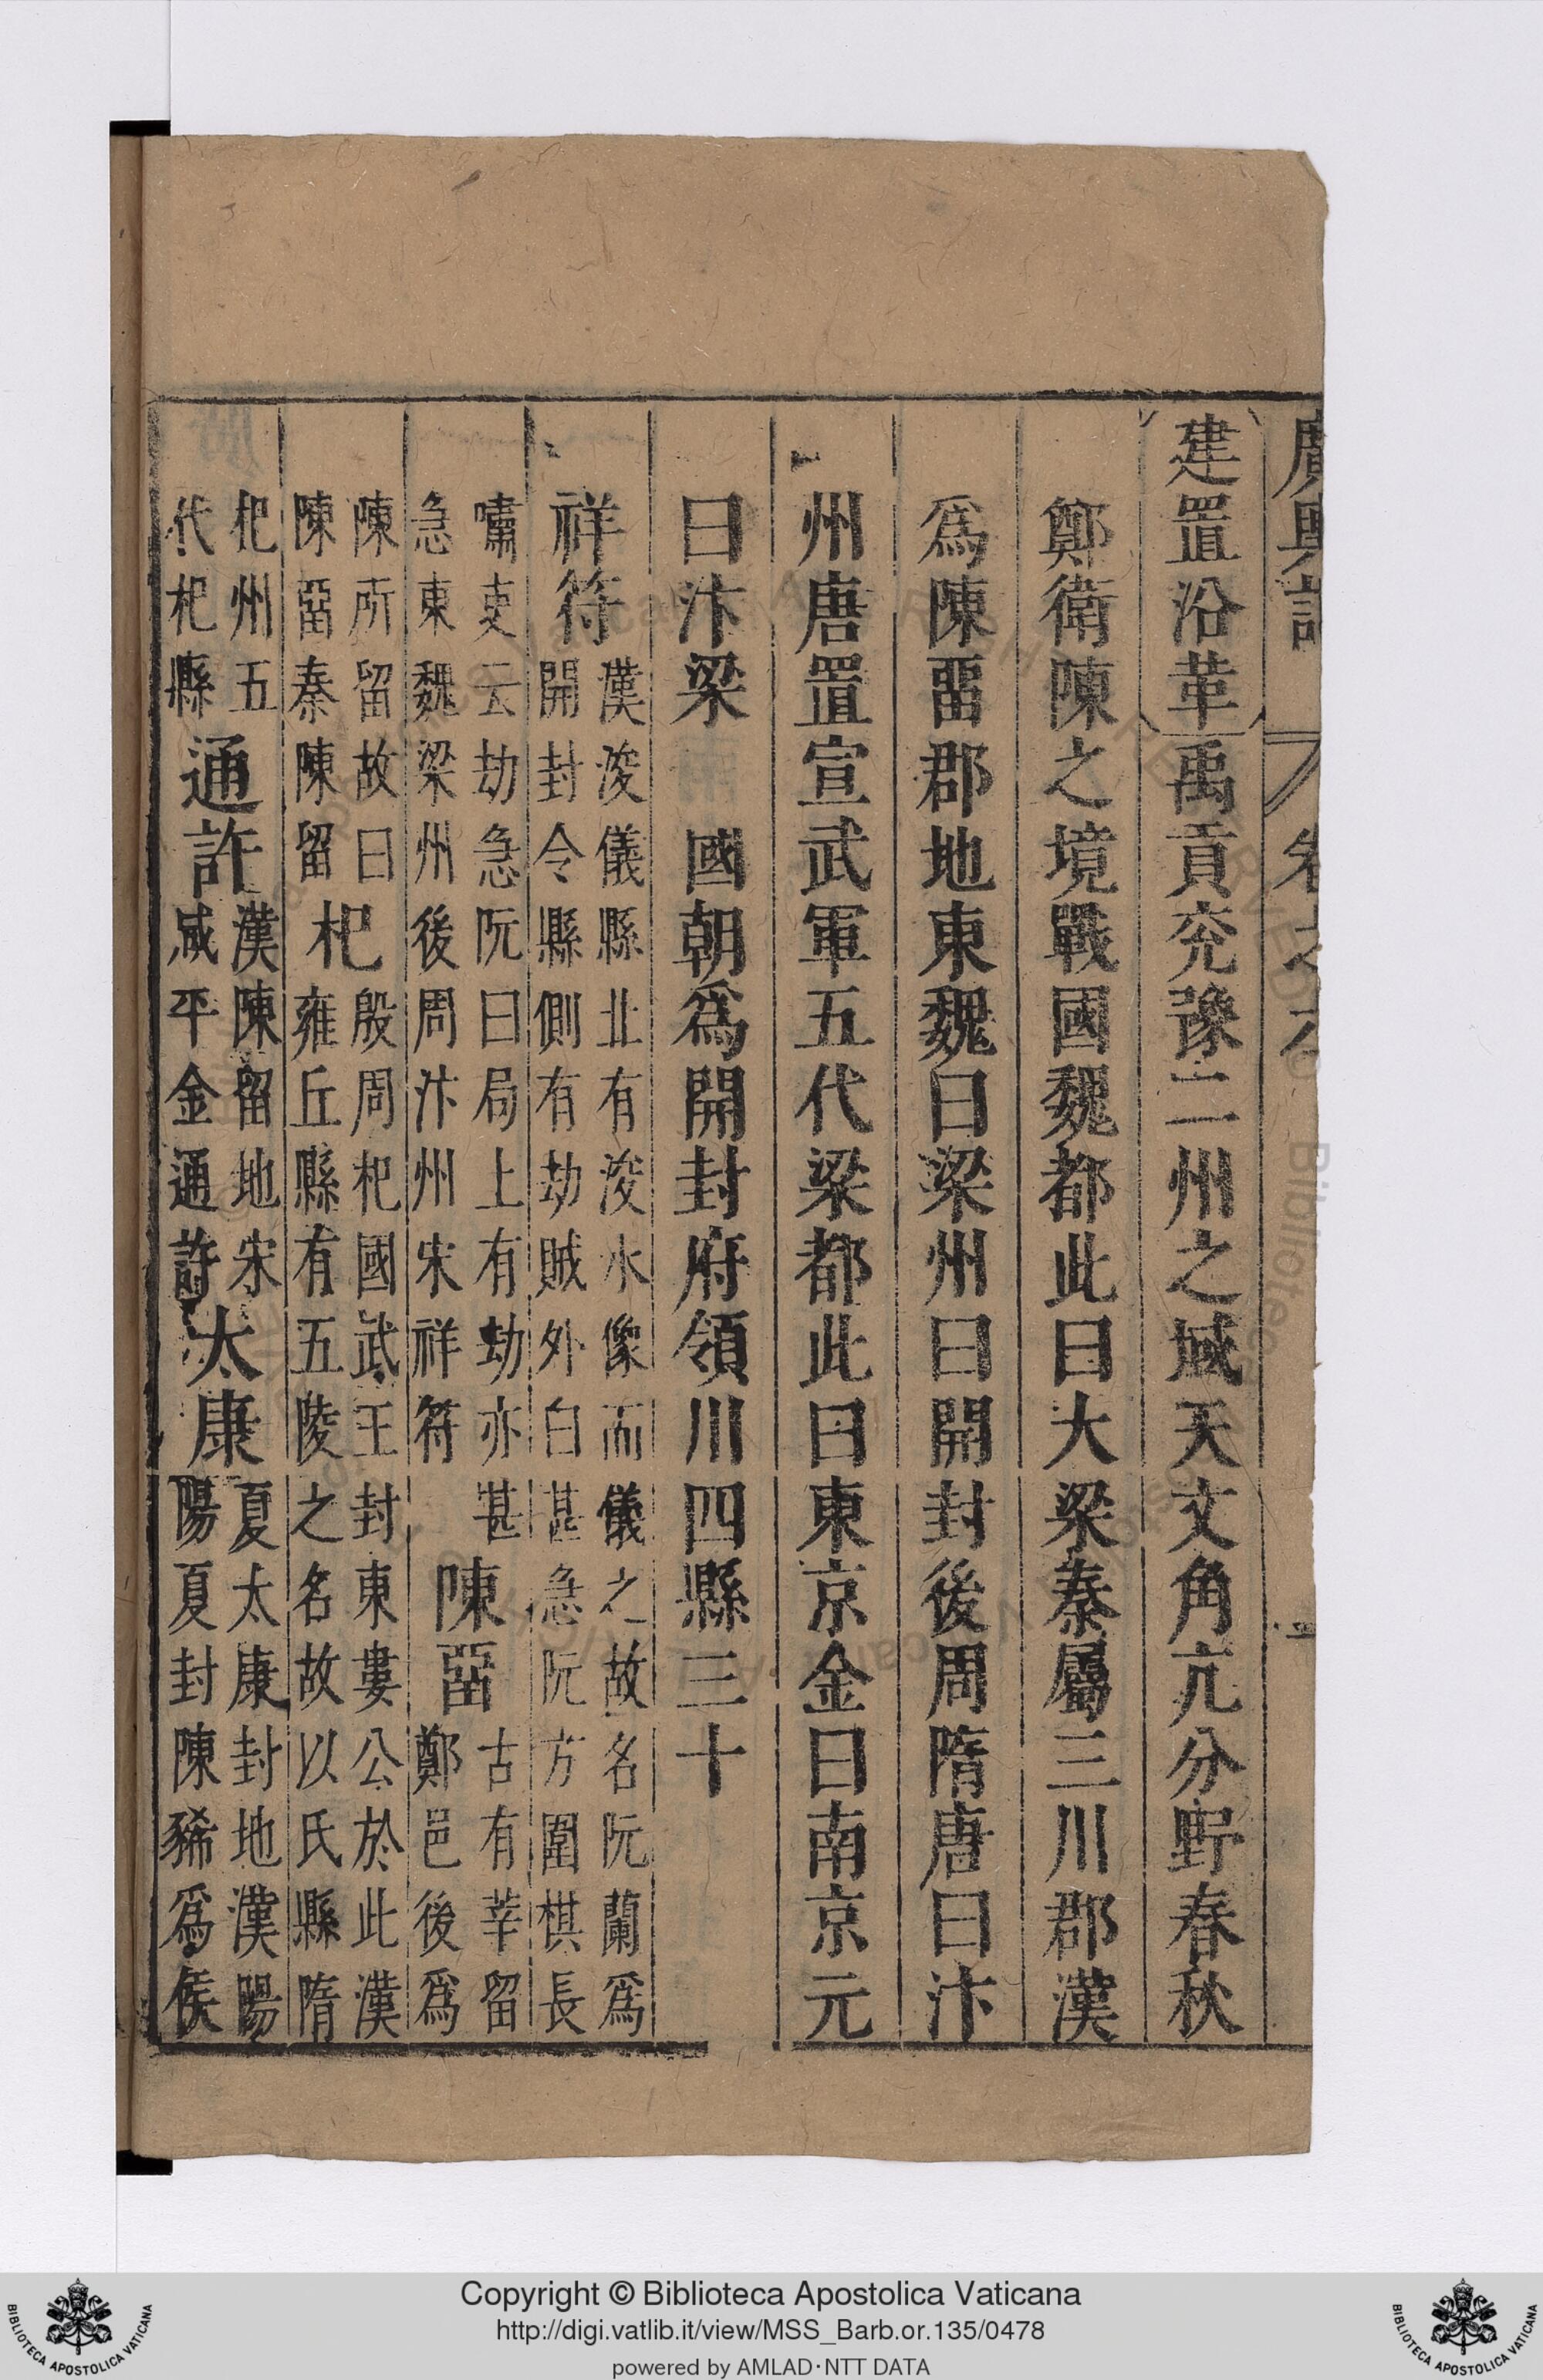 廣輿記 卷之六
建置沿革禹貢兖豫二州之域天文角亢分野春秋
鄭衛陳之境戰國魏都此曰大梁秦屬三川郡漢
爲陳畱郡地東魏曰梁州曰開封後周隋唐曰汴
州唐置宣武軍五代梁都此曰東京金曰南京元
曰汴梁 國朝爲開封府領川四縣三十
祥符
漢浚儀縣北有浚水像而儀之故名阮蘭爲
開封令縣側有劫賊外白甚急阮方圍棋長
嘯吏云劫急阮曰局上有劫亦甚
急東魏梁州後周汴州宋祥符
陳畱
古有莘留
鄭邑後爲
陳所留故曰
陳畱秦陳留
杞
殷周杞國武王封東婁公於此漢
雍丘縣有五陵之名故以氏縣隋
杞州五
代杞縣
通許
漢陳留地宋
咸平金通許
太康
夏太康封地漢陽
陽夏封陳豨爲侯
Copyright © Biblioteca Apostolica Vaticana
http://digi.vatlib.it/view/MSS_Barb.or.135/0478
powered by AMLAD·NTT DATA
BIBLIOTECA APOSTOLICA VATICANA
BIBLIOTECA APOSTOLICA VATICANA